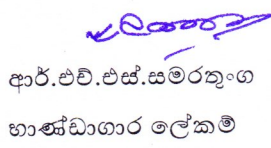 ආර්.එච්.එස්.සමරතුංග
භාණ්ඩාගාර ලේකම්